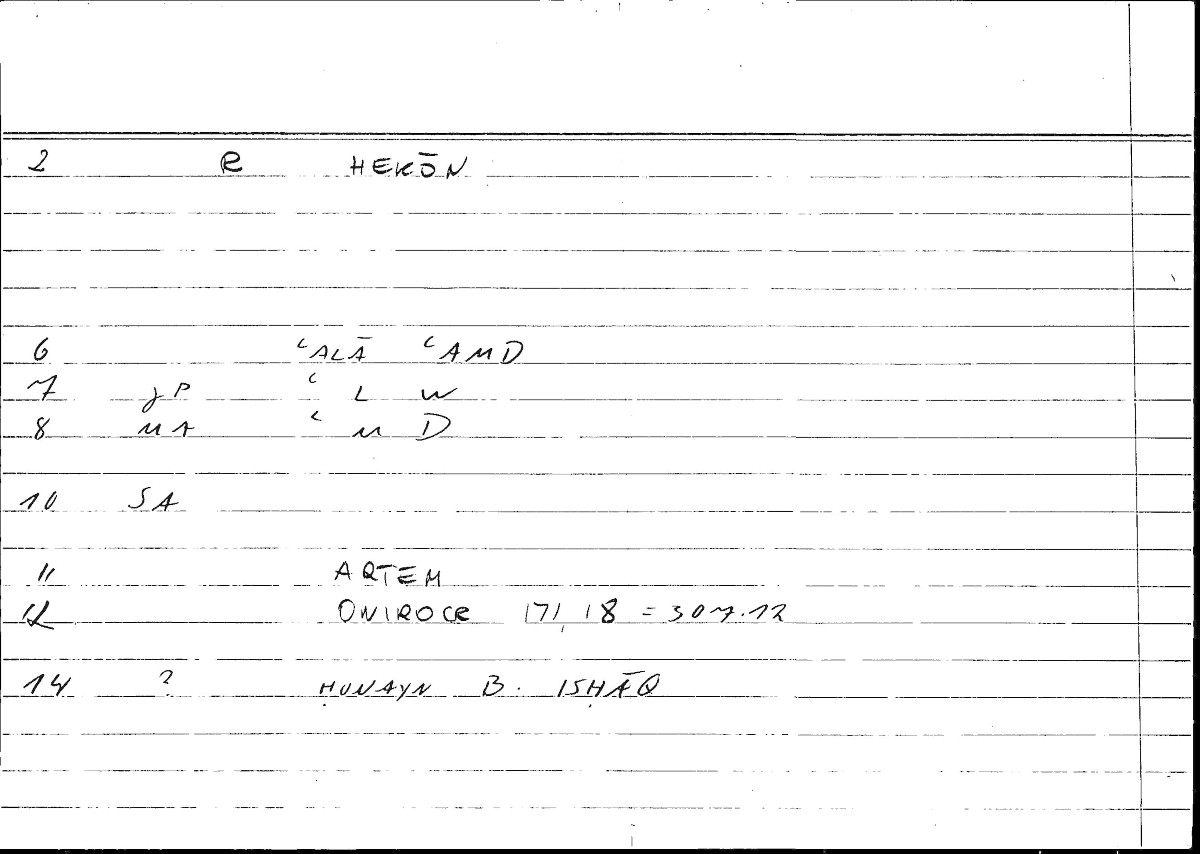 2 e HEKŌN
6 ʿALĀ ʿAMD
7 JP ʿ L W
8 MA ʿ M D
10 SA
11 ARTEM
12 ONIROCR 171,18 = 307.12
14 ? ḤUNAYN B. ISḤĀQ